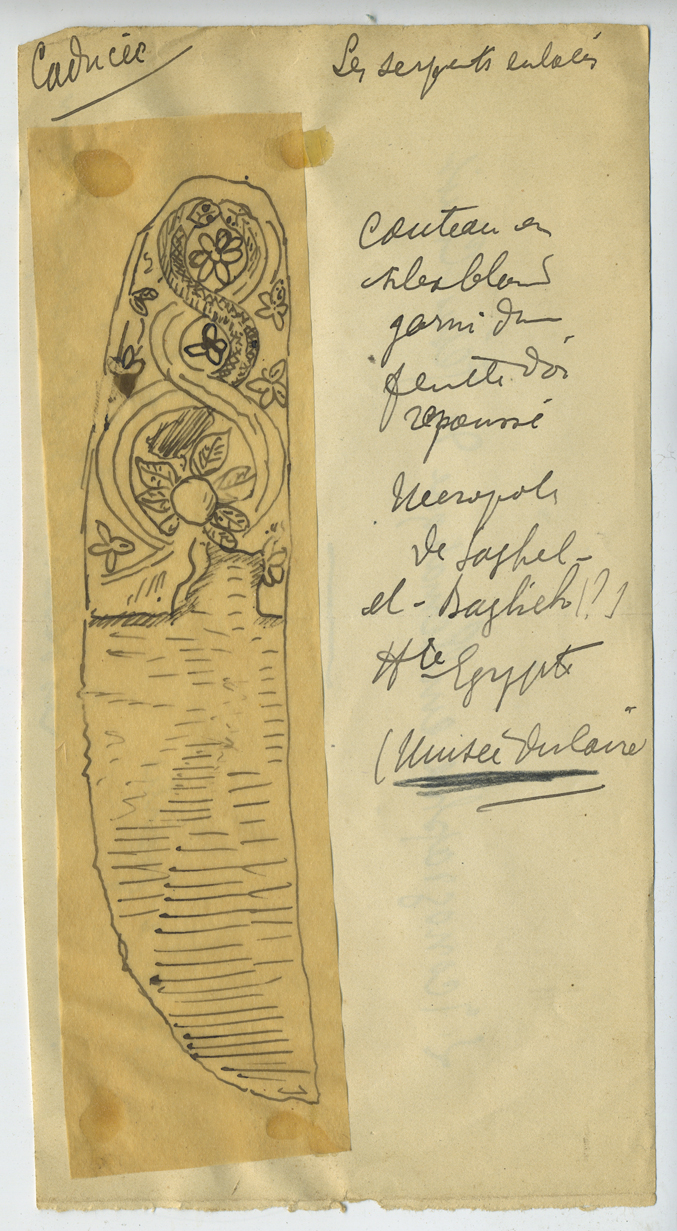 Caducée
Les serpents enlacés
Couteau en
silex blond
garni d'une
feuille d'or
repoussé
Necropole
de Saghel-
el-Baglieh (?)
Hte Egypte
(Musée du Caire